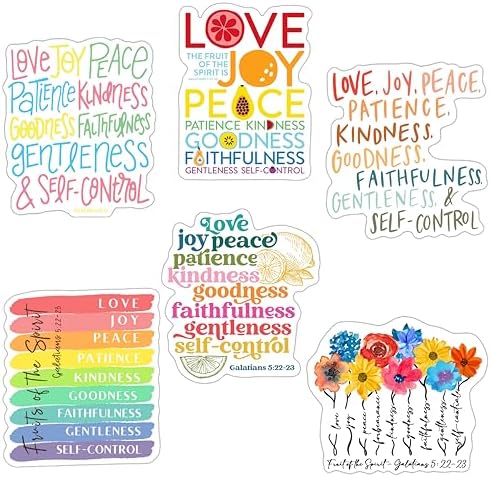 LOVE JOY PEACE
PATIENCE KINDNESS
GOODNESS FAITHFULNESS
gentleness
& SELF-CONTROL
LOVE
THE FRUIT OF THE
SPIRIT IS
JOY
PEACE
PATIENCE KINDNESS
GOODNESS
FAITHFULNESS
GENTLENESS SELF-CONTROL
LOVE, JOY, PEACE,
PATIENCE,
KINDNESS,
GOODNESS,
FAITHFULNESS,
GENTLENESS, &
SELF-CONTROL
Fruits of the Spirit
Galatians 5:22-23
LOVE
JOY
PEACE
PATIENCE
KINDNESS
GOODNESS
FAITHFULNESS
GENTLENESS
SELF-CONTROL
Love
joy peace
patience
kindness
goodness
faithfulness
gentleness
self-control
Galatians 5:22-23
love
joy
peace
forbearance
kindness
goodness
faithfulness
gentleness
self-control
Fruit of the Spirit - Galatians 5:22-23